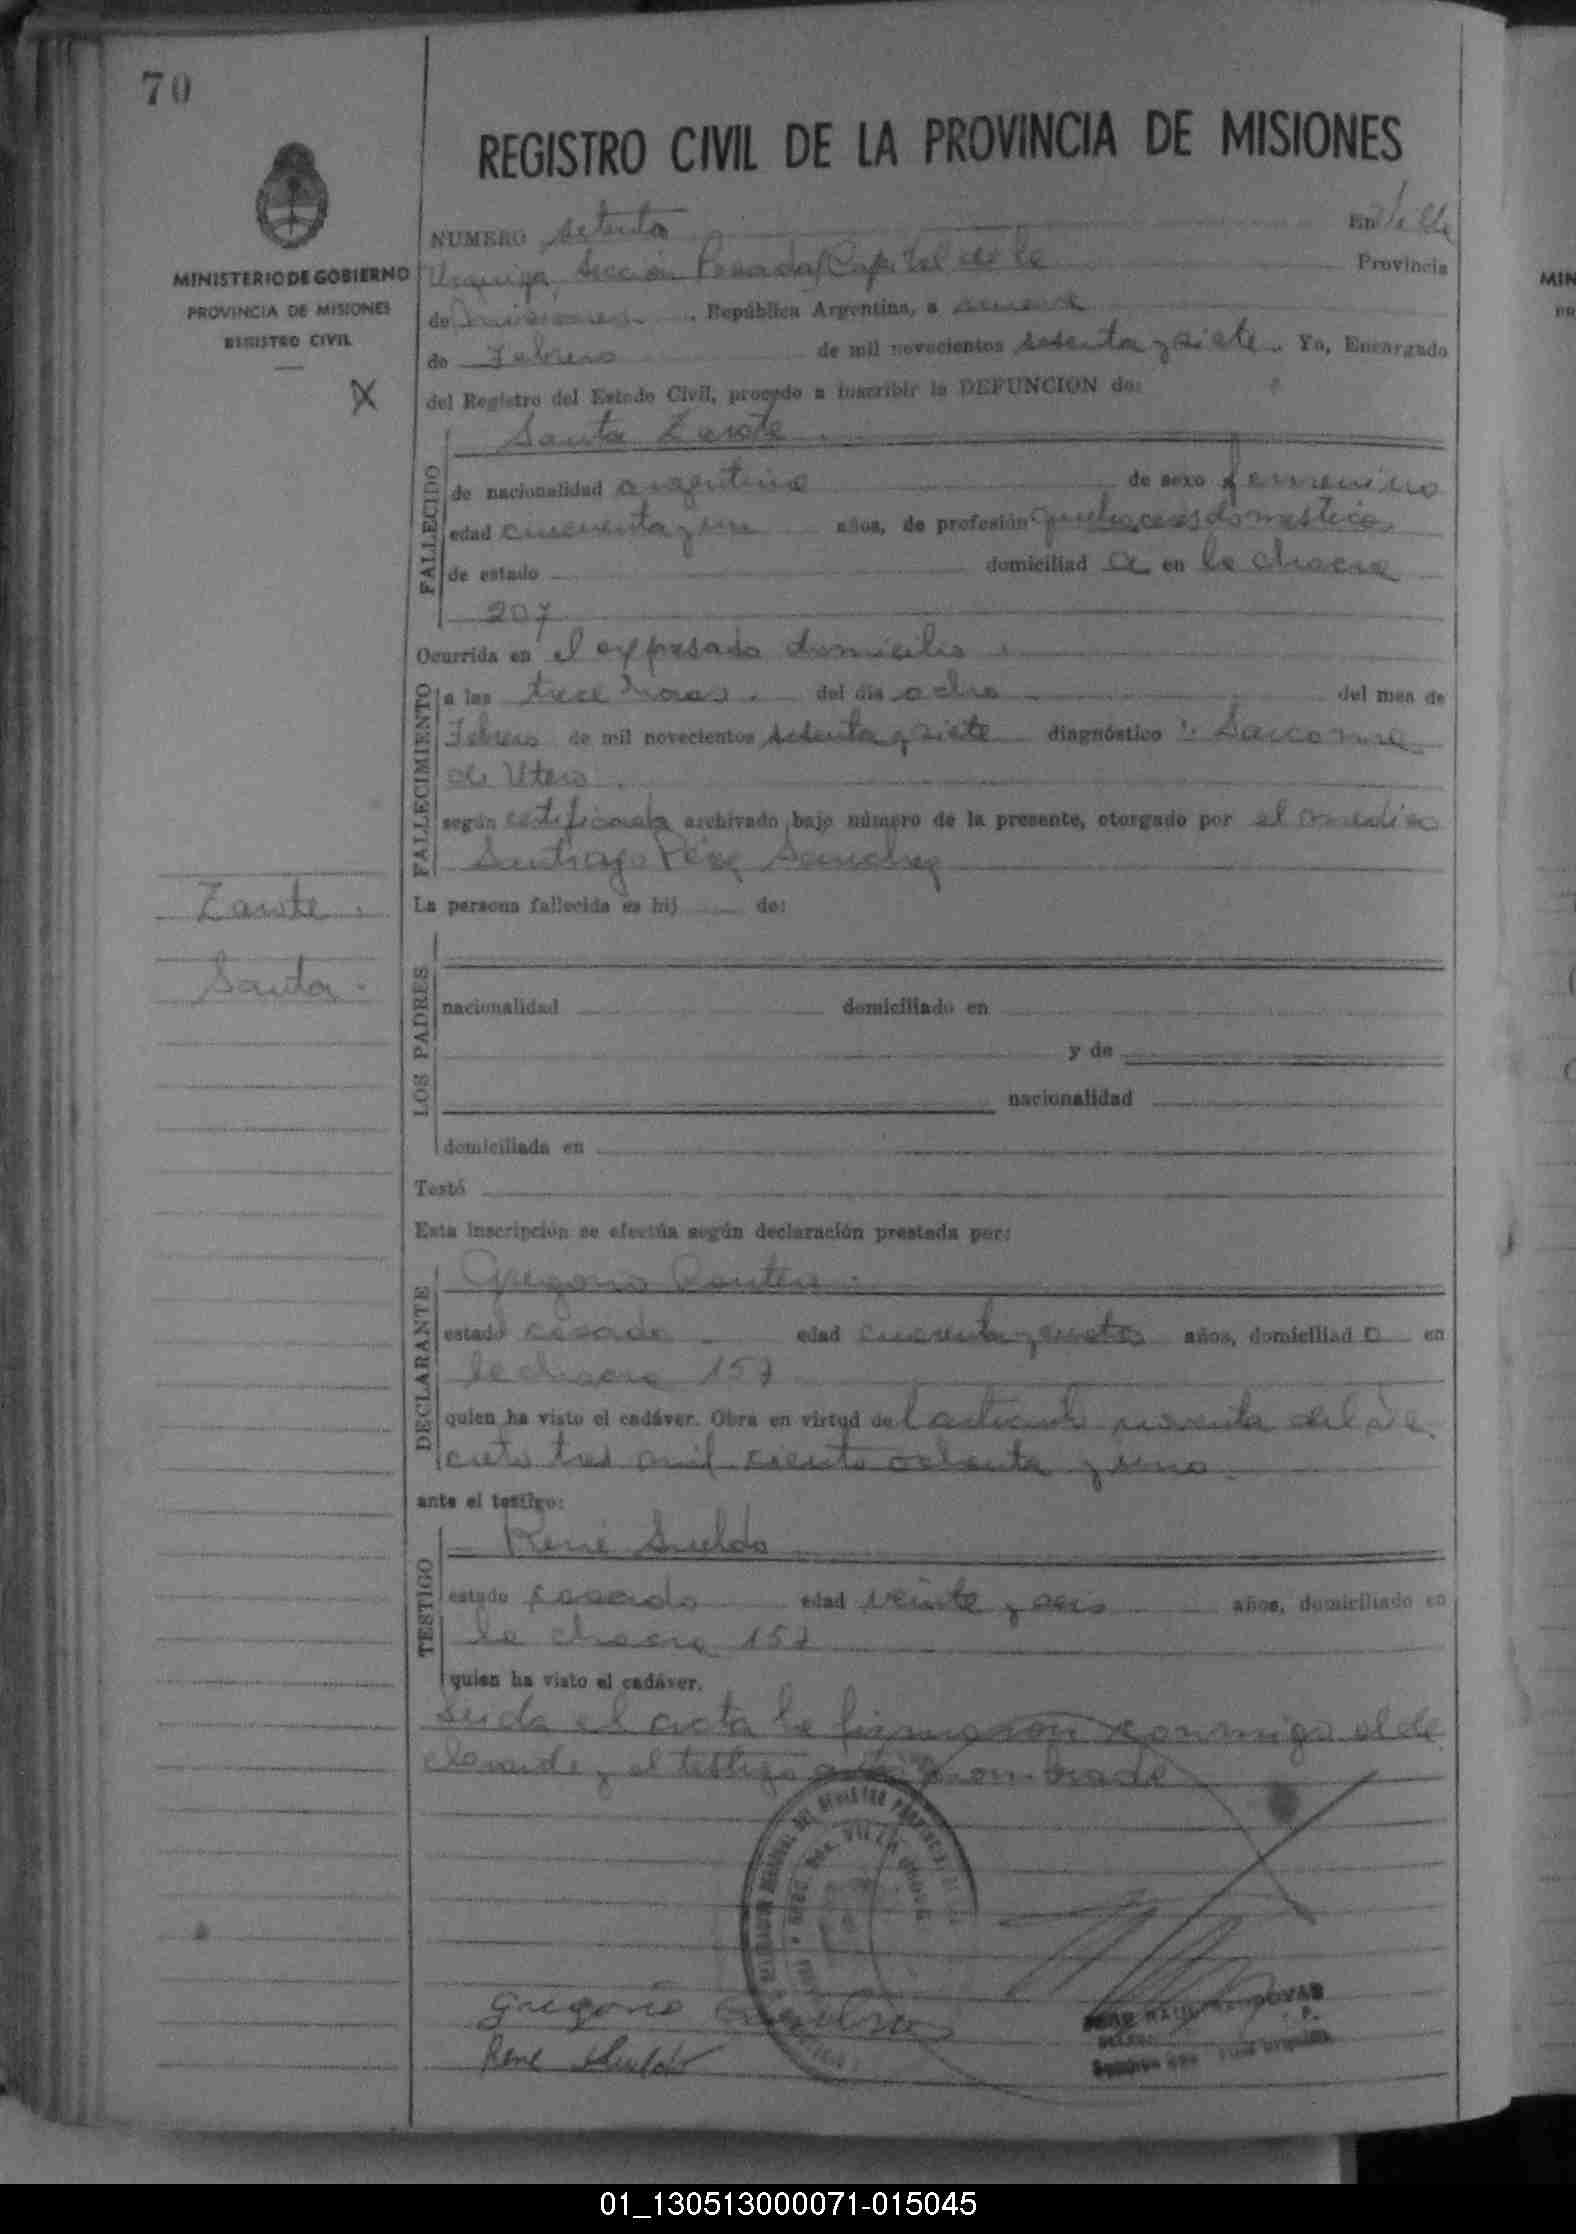 70
REGISTRO CIVIL DE LA PROVINCIA DE MISIONES
MINISTERIO DE GOBIERNO
PROVINCIA DE MISIONES
REGISTRO CIVIL
X
NUMERO setenta En Villa
Urquiza, Sección Posadas Capital de la Provincia
de Misiones. República Argentina, a nueve
de Febrero de mil novecientos setenta y siete. Yo, Encargado
del Registro del Estado Civil, procedo a inscribir la DEFUNCION de:
Santa Zarate
FALLECIDO
de nacionalidad argentina de sexo femenino
edad cincuenta y un años, de profesión quehaceres domesticos
de estado domiciliad a en la chacra
207
Ocurrida en el expresado domicilio
FALLECIMIENTO
a las trece horas. del día ocho del mes de
Febrero de mil novecientos setenta y siete diagnóstico : Sarcoma
de Utero
según certificado archivado bajo número de la presente, otorgado por el medico
Santiago Sanchez
Zarate
La persona fallecida es hij de:
Santa
LOS PADRES
nacionalidad domiciliado en
y de
nacionalidad
domiciliada en
Testó
Esta inscripción se efectúa según declaración prestada por:
DECLARANTE
Gregorio
estado casado edad cincuenta y años, domiciliad o en
la chacra 157
quien ha visto el cadáver. Obra en virtud del articulo noventa del De
creto tres mil ciento ochenta y uno
ante el testigo:
TESTIGO
René Sueldo
estado casado edad veinte y seis años, domiciliado en
la chacra 157
quien ha visto el cadáver.
Leida el acta la firmaron conmigo el de
clarante y el testigo nombrado
Gregorio
Rene Sueldo
01_130513000071-015045